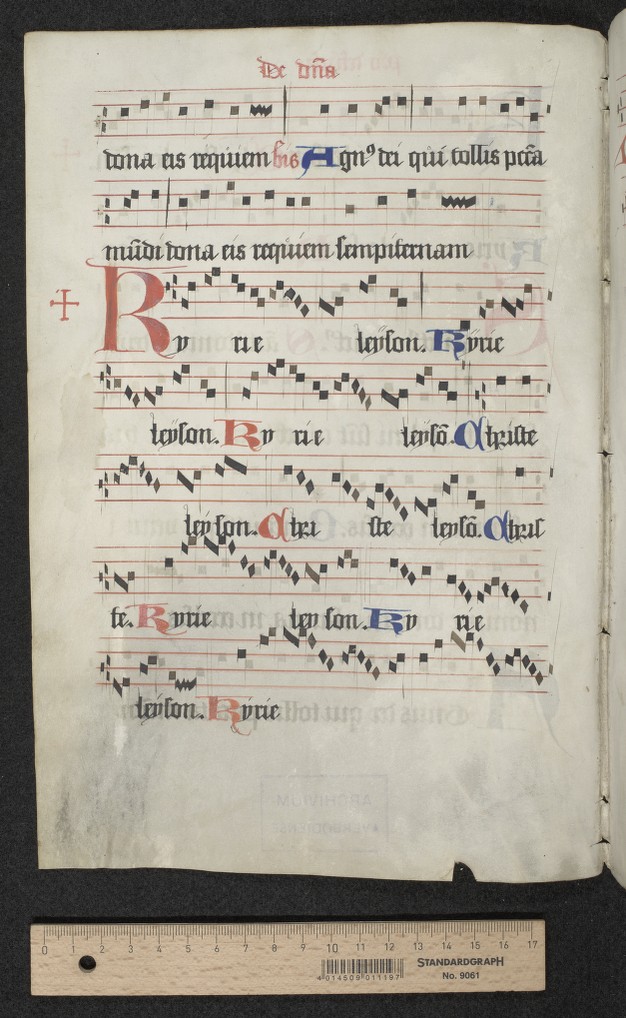 De dn̄a
dona eis requiem bis Agnꝰ dei qui tollis pcc̄a
mūdi dona eis requiem sempiternam
Ky rie leyson. Kyrie
leyson. Ky rie leysō. Christe
leyson. Chri ste leysō. Chris
te. Kyrie ley son. Ky rie
leyson. Kyrie
ARCHIVIUM
AVERBODIENSE
0 1 2 3 4 5 6 7 8 9 10 11 12 13 14 15 16 17
4 014509 011197
STANDARDGRAPH
No. 9061